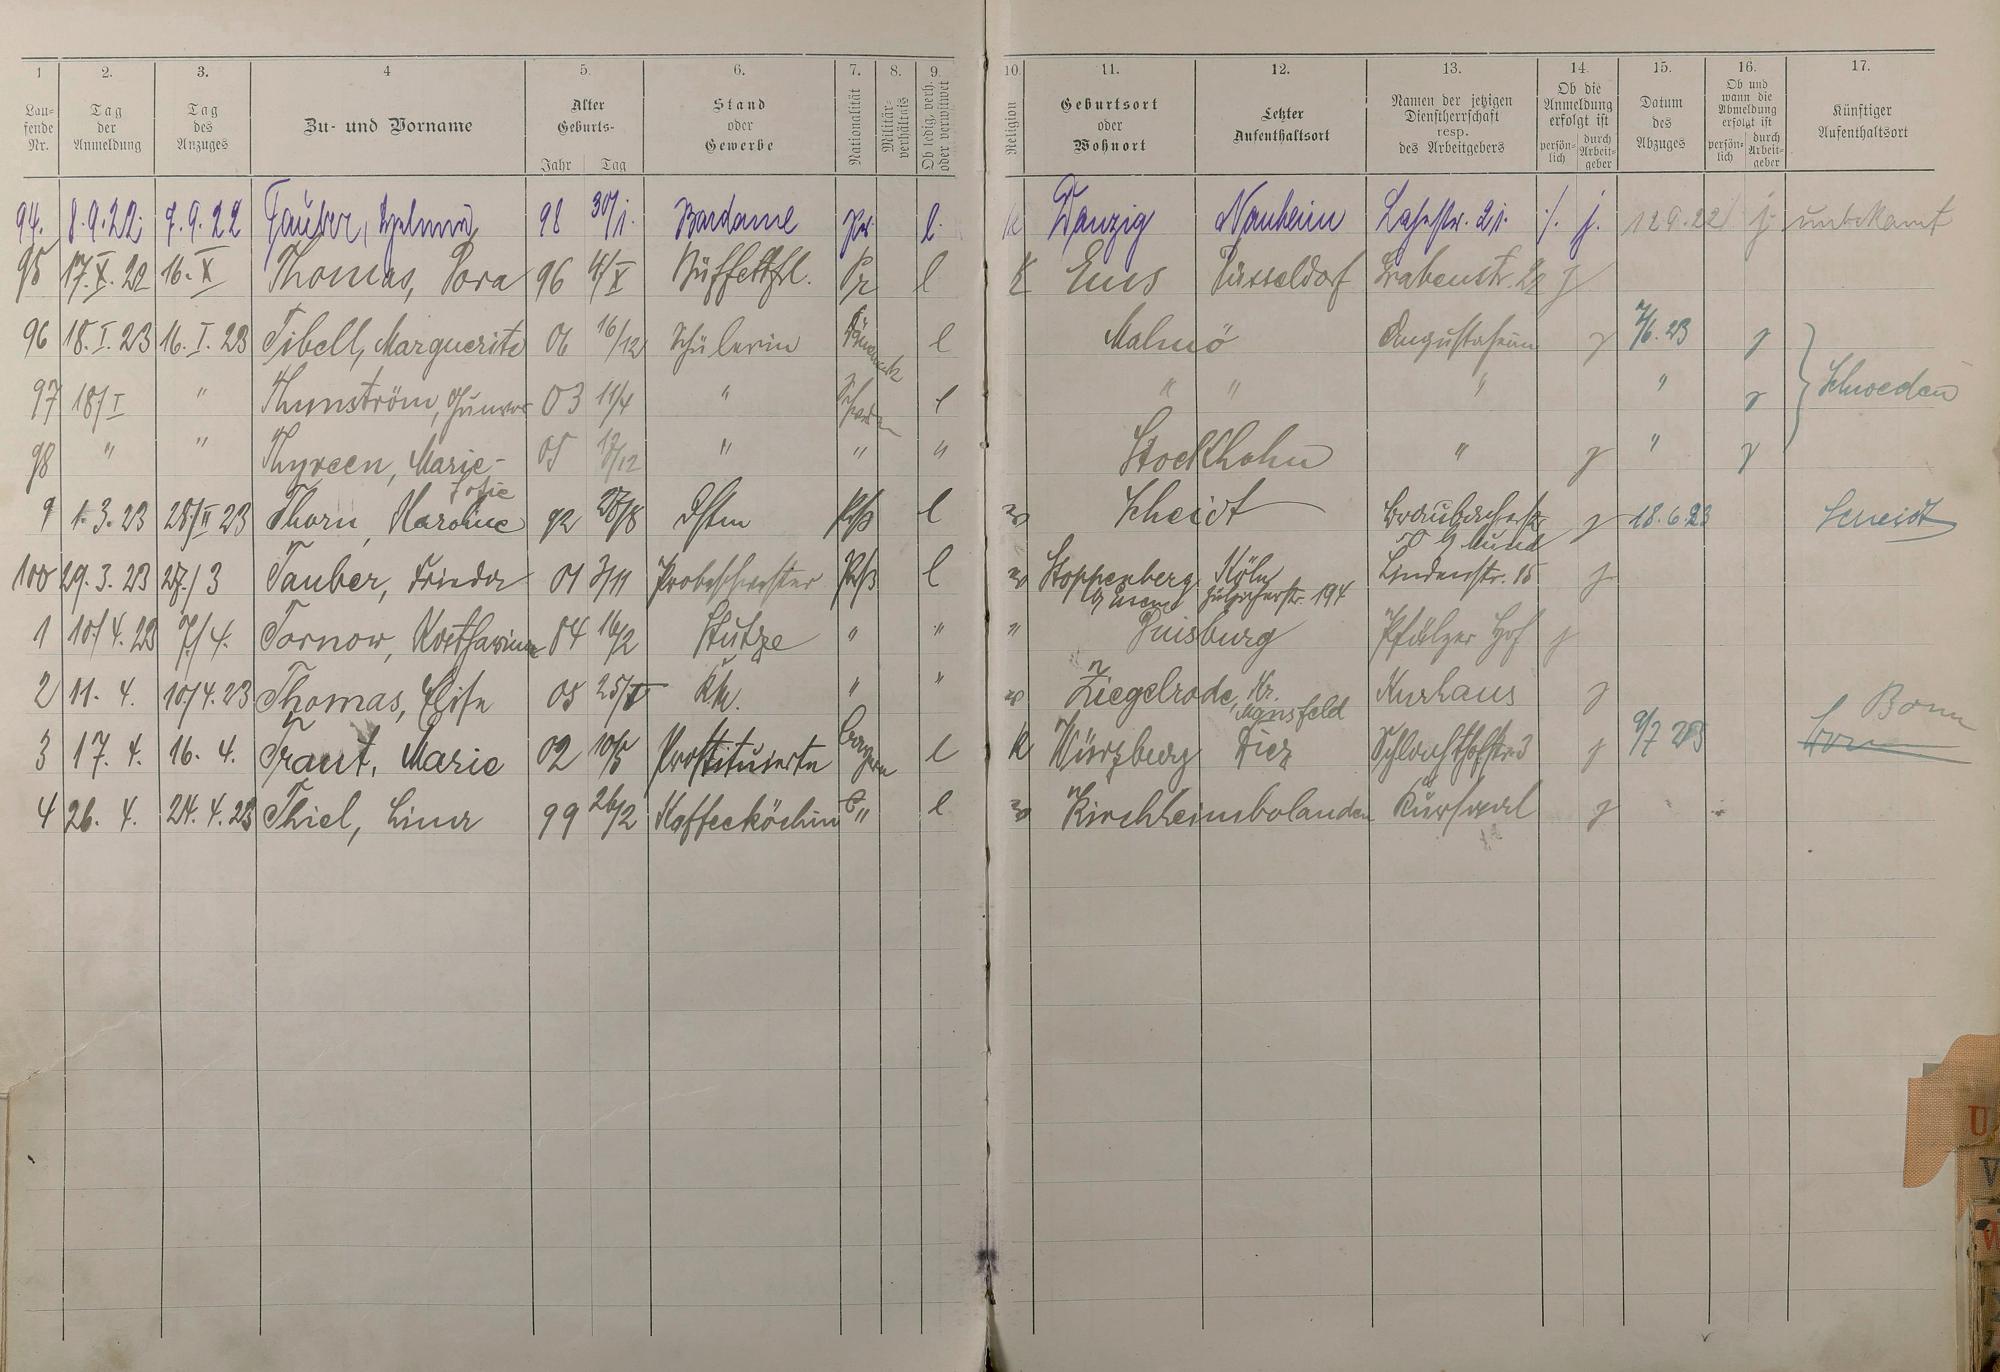 1 2. 3. 4 5. 6. 7. 8. 9. 10. 11. 12. 13. 14 15. 16. 17.
Lau-
fende
Nr.
Tag
der
Anmeldung
Tag
des
Anzuges
Zu- und Vorname
Alter
Geburts-
Jahr Tag
Stand
oder
Gewerbe
Nationalität
Militär-
verhältnis
Ob ledig, verh.
oder verwitwet
Religion
Geburtsort
oder
Wohnort
Letzter
Aufenthaltsort
Namen der jetzigen
Dienstherrschaft
resp.
des Arbeitgebers
Ob die
Anmeldung
erfolgt ist
persön-
lich
durch
Arbeit-
geber
Datum
des
Abzuges
Ob und
wann die
Abmeldung
erfolgt ist
persön-
lich
durch
Arbeit-
geber
Künftiger
Aufenthaltsort
94. 8.9.22. 7.9.22 Tauber, 98 30/1. Bardame l. k Danzig Nauheim 21. j. 12.9.22 j. unbekannt
95 17.X.22 16.X Thomas, Dora 96 4/X Büffettfrl. Pr l K Ems Düsseldorf Grabenstr. 22 j
96 18.I.23 16.I.23 Tibell, Marguerite 06 16/12 Schülerin Dänemark l Malmö Augustaheim j 7/6.23 j
97 18/I " Thunström, 03 11/4 " Schweden l " " " " j Schweden
98 " " Thyreen, Marie- 05 " " " Stockholm " j " j
Sofie
9 1.3.23 28/II 23 Thorn, Karoline 92 l w Scheidt Braubacherstr. j 18.6.23 Scheidt
100 29.3.23 27./3 Tauber, Frieda 01 3/11 Probeschwester l w Stoppenberg Köln Lindenstr. 15 j
b/ Essen Zülpicherstr. 194
1 10/4.23 7./4. Tornow, Katharina 04 Stütze " " " Duisburg Pfälzer Hof j
2 11. 4. 10/4.23 Thomas, Elise 05 " " w Ziegelrode, Kr. Kurhaus j
Mansfeld
3 17. 4. 16. 4. Traut, Marie 02 10/5 Prostituierte Bayern l K Würzburg Diez j 9/7 23 Bonn
4 26. 4. 24.4.23 Thiel, Lina 99 26/2 Kaffeeköchin " l w Kirchheimbolanden Kursaal j
U
V
W